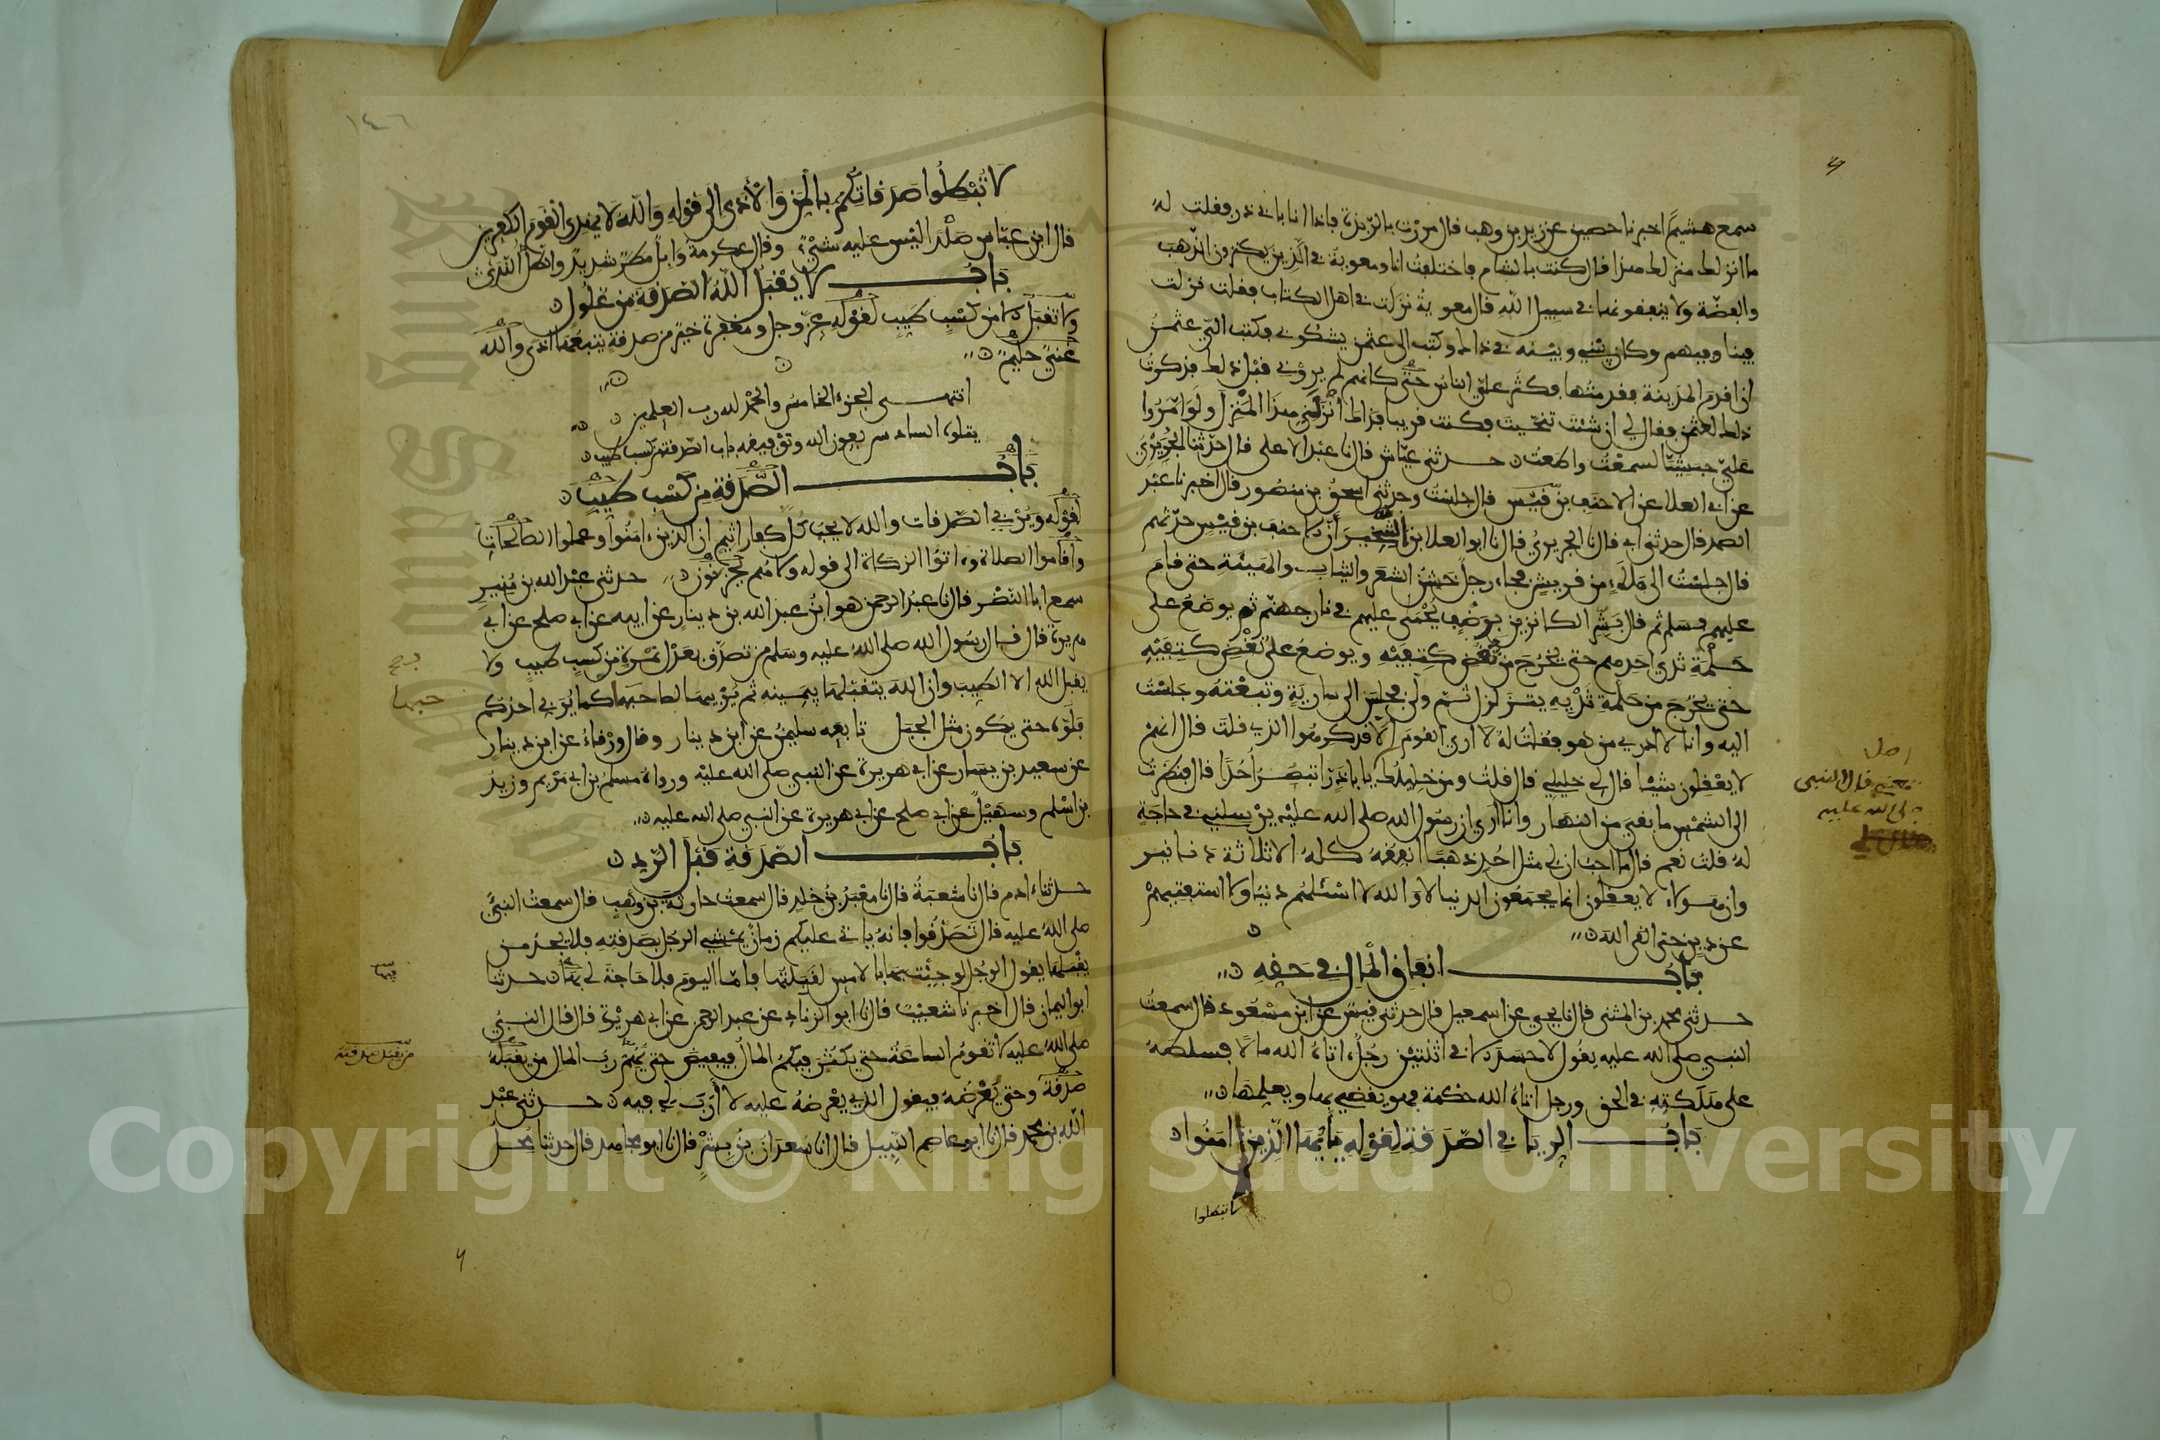 سمع هشيمًا اخبرنا حصين عن زيد بن وهب قال مررت بالربذة فاذا انا بابي ذر فقلت له
ما انزلك منزلك هذا قال كنت بالشام فاختلفت انا ومعوية في الذين يكنزون الذهب
والفضة ولا ينفقونها في سبيل الله قال معوية نزلت في اهل الكتاب فقلت نزلت
فينا وفيهم وكان بيني وبينه في ذاك وكتب الى عثمن يشكوني فكتب الي عثمن
ان اقدم المدينة فقدمتها فكثر علي الناس حتى كانهم لم يروني قبل ذلك فذكرت
ذلك لعثمن فقال لي ان شئت تنحيت فكنت قريبا فذاك انزلني هذا المنزل ولو امروا
علي حبشيا لسمعت واطعت حدثني عياش قال نا عبد الاعلى قال حدثنا الجريري
عن ابي العلا عن الاحنف بن قيس قال جلست وحدثني اسحق بن منصور قال اخبرنا عبد
الصمد قال حدثني ابي قال نا الجريري قال نا ابو العلا بن الشخير ان الاحنف بن قيس حدثهم
قال جلست الى ملاء من قريش فجاء رجل خشن الشعر والثياب والهيئة حتى قام
عليهم فسلم ثم قال بشر الكانزين برضف يحمى عليهم في نار جهنم ثم يوضع على
حلمة ثدي احدهم حتى يخرج من نغض كتفيه ويوضع على نغض كتفيه
حتى يخرج من حلمة ثديه يتزلزل ثم ولى فجلس الى سارية وتبعته وجلست
اليه وانا لا ادري من هو فقلت له لا ارى القوم الا قد كرهوا الذي قلت قال انهم
لا يعقلون شيئا قال لي خليلي قال قلت ومن خليلك يا با ذر اتبصر احدا قال فنظرت
الى الشمس ما بقي من النهار وانا ارى ان رسول الله صلى الله عليه يرسلني في حاجة
له قلت نعم قال ما احب ان لي مثل احد ذهبا انفقه كله الا ثلاثة دنانير
وان هولاء لا يعقلون انما يجمعون الدنيا لا والله لا اسئلهم دنيا ولا استفتيهم
عن دين حتى القى الله
باب انفاق المال في حقه
حدثني محمد بن المثنى قال نا يحيى عن اسمعيل قال حدثني قيس عن ابن مسعود قال سمعت
النبي صلى الله عليه يقول لا حسد الا في اثنتين رجل اتاه الله مالا فسلطه
على هلكته في الحق ورجل اتاه الله حكمة فهو يقضي بها ويعلمها
باب الريا في الصدقة لقوله يايها الذين امنوا
لا تبطلوا
اصل
قال النبي
صلى الله عليه
١٤٦
لا تبطلوا صدقاتكم بالمن والاذى الى قوله والله لا يهدي القوم الكفرين
قال ابن عباس صلدا ليس عليه شيء وقال عكرمة وابل مطر شديد والطل الندى
باب لا يقبل الله الصدقة من غلول
ولا تقبل الا من كسب طيب لقوله عز وجل ومغفرة خير من صدقة يتبعها اذى والله
غني حليم
انتهى الجزء الخامس والحمد لله رب العلمين
يتلوه السادس بعون الله وتوفيقه باب الصدقة من كسب طيب
باب الصدقة من كسب طيب
لقوله ويربي الصدقات والله لا يحب كل كفار اثيم ان الذين امنوا وعملوا الصالحات
واقاموا الصلاة واتوا الزكاة الى قوله ولا هم يحزنون حدثني عبد الله بن منير
سمع ابا النضر قال نا عبد الرحمن هو ابن عبد الله بن دينار عن ابيه عن ابي صلح عن ابي
هريرة قال قال رسول الله صلى الله عليه وسلم من تصدق بعدل تمرة من كسب طيب ولا
يقبل الله الا الطيب وان الله يتقبلها بيمينه ثم يربيها لصاحبها كما يربي احدكم
فلوه حتى يكون مثل الجبل تابعه سليمن عن ابن دينار وقال ورقاء عن ابن دينار
عن سعيد بن يسار عن ابي هريرة عن النبي صلى الله عليه ورواه مسلم بن ابي مريم وزيد
بن اسلم وسهيل عن ابي صلح عن ابي هريرة عن النبي صلى الله عليه
باب الصدقة قبل الرد
حدثنا ادم قال نا شعبة قال نا معبد بن خلد قال سمعت حارثة بن وهب قال سمعت النبي
صلى الله عليه قال تصدقوا فانه ياتي عليكم زمان يمشي الرجل بصدقته فلا يجد من
يقبلها يقول الرجل لو جئت بها بالامس لقبلتها فاما اليوم فلا حاجة لي بها حدثنا
ابو اليمان قال اخبرنا شعيب قال نا ابو الزناد عن عبد الرحمن عن ابي هريرة قال قال النبي
صلى الله عليه لا تقوم الساعة حتى يكثر فيكم المال فيفيض حتى يهم رب المال من يقبله
صدقة وحتى يعرضه فيقول الذي يعرضه عليه لا ارب لي فيه حدثني عبد
الله بن محمد قال نا ابو عاصم النبيل قال انا سعدان بن بشر قال نا ابو مجاهد قال حدثنا محل
فيها
من يقبل صدقته
Copyright © King Saud University
King Saud University